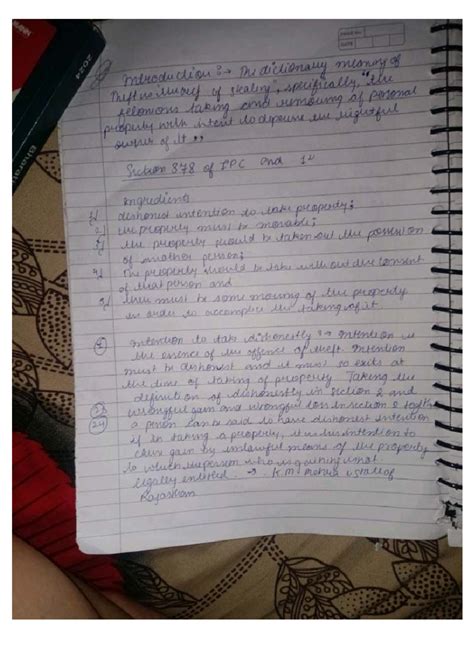 2024
Bharat
DATE
Introduction :→ The dictionary meaning of
Theft is "act of stealing", specifically, "the
felonious taking and removing of personal
property with intent to deprive the rightful
owner of it"
Section 378 of IPC and
Ingredients
1) dishonest intention to take property;
2) the property must be movable;
3) the property should be taken out the possession
of another person;
4) The property should be take without the consent
of that person and
5) there must be some moving of the property
in order to accomplish the taking of it.
① Intention to take dishonestly :→ Intention is
the essence of the offence of theft. Intention
must be dishonest and it must so exits at
the time of taking of property Taking the
definition of dishonestly in section 2 and
23 wrongful gain and wrongful loss in section
24 a person can be said to have dishonest intention
if in taking a property, it is his intention to
gain by unlawful means of the property
to which the person who is gaining is not
legally entitled. → K.M. Mehra v State of
Rajasthan